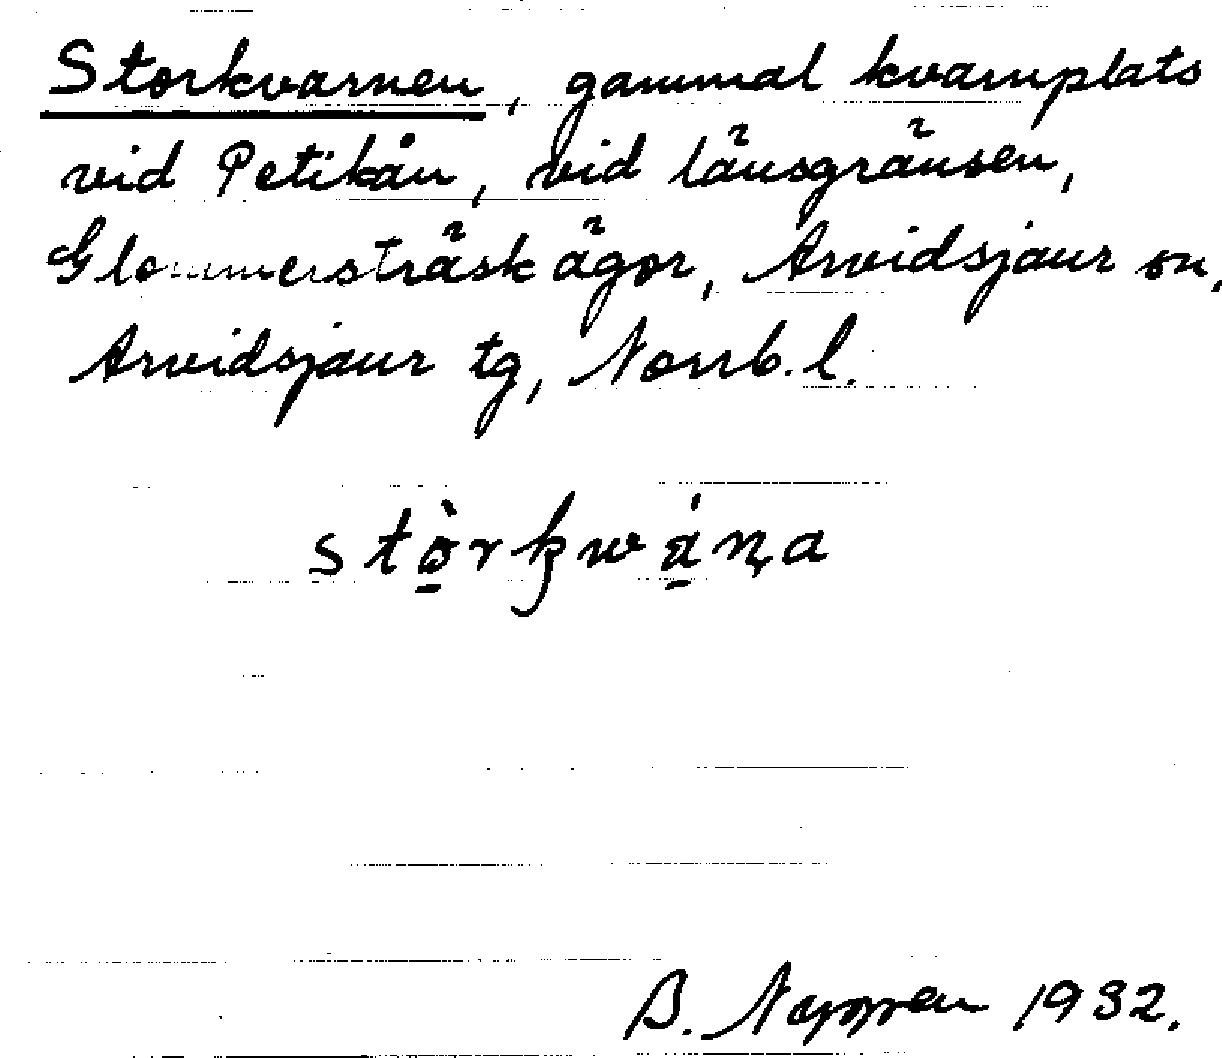 Storkvarnen, gammal kvarnplats
vid Petikån, vid länsgränsen,
Glommersträsk ägor, Arvidsjaur sn,
Arvidsjaur tg, Norrb. l.
B. 1932.